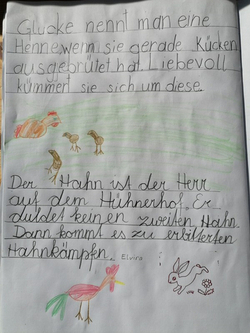 Glucke nennt man eine
Henne, wenn sie gerade Kücken
ausgebrütet hat. Liebevoll
kümmert sie sich um diese.
Der Hahn ist der Herr
auf dem Hühnerhof. Er
duldet keinen zweiten Hahn.
Dann kommt es zu erbitterten
Hahnkämpfen. Elvira